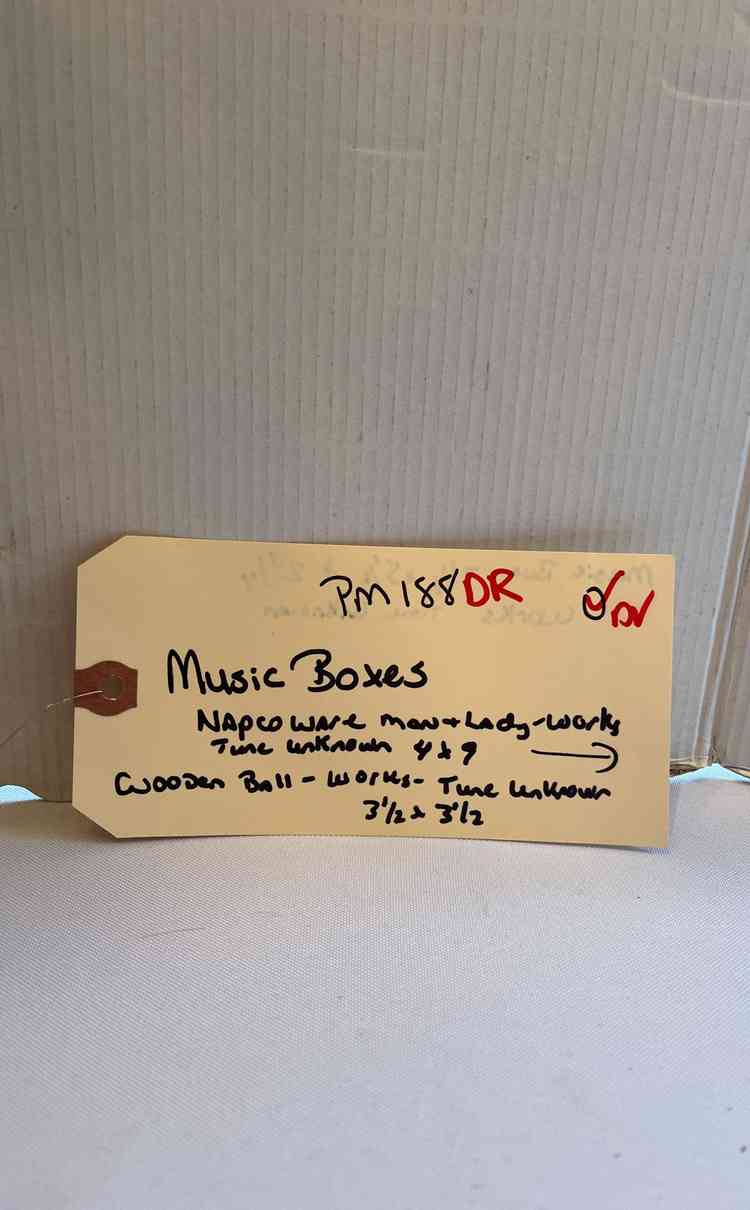 PM 188 DR
Music Boxes
NAPCO WARE man + Lady - works
Tune unknown 4 x 9 →
Wooden Ball - works - Tune unknown
3 1/2 x 3 1/2